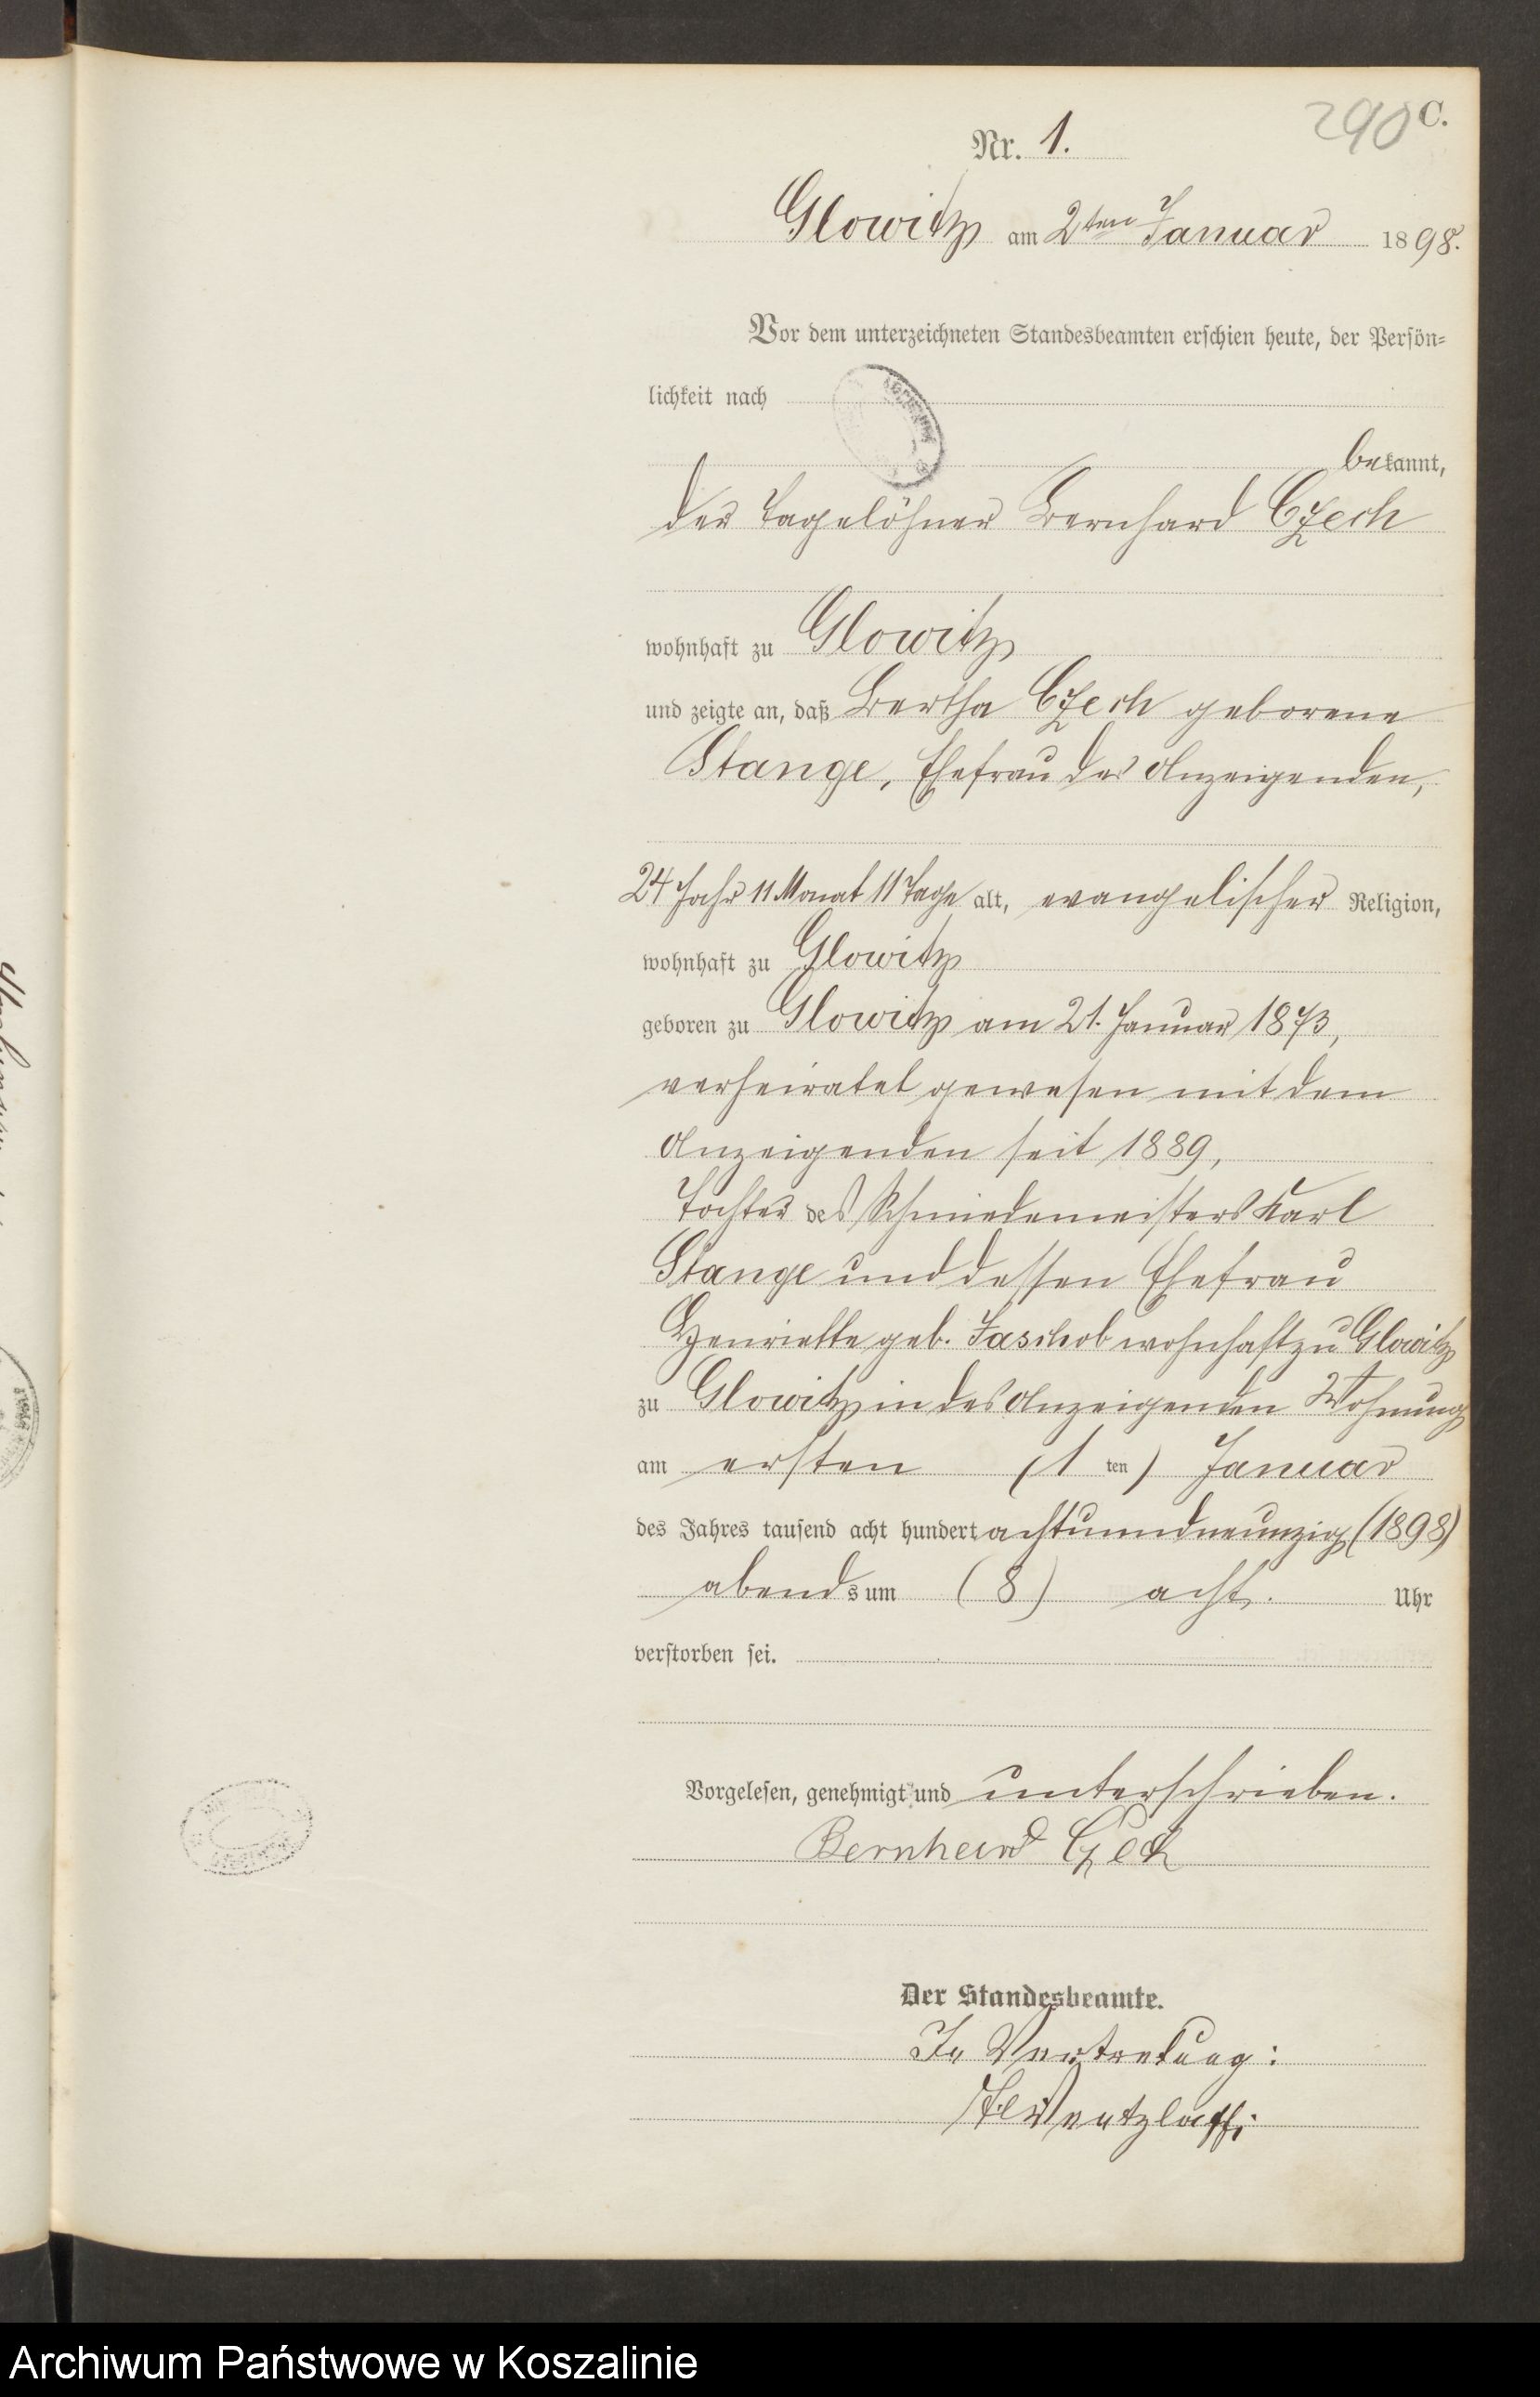 290 C.
Nr. 1.
Glowitz am 2ten Januar 1898.
Vor dem unterzeichneten Standesbeamten erschien heute, der Persön-
lichkeit nach
bekannt,
der Tagelöhner Bernhard Czech
wohnhaft zu Glowitz
und zeigte an, daß Bertha Czech geborene
Stange, Ehefrau des Anzeigenden,
24 Jahr 11 Monat 11 Tage alt, evangelischer Religion,
wohnhaft zu Glowitz
geboren zu Glowitz am 21. Januar 1873,
verheiratet gewesen mit dem
Anzeigenden seit 1889,
Tochter des Schmiedemeisters Karl
Stange und dessen Ehefrau
Henriette geb. Jaschob wohnhaft zu Glowitz
zu Glowitz in des Anzeigenden Wohnung
am ersten (1 ten) Januar
des Jahres tausend acht hundert achtunndneunzig (1898)
abends um (8) acht. Uhr
verstorben sei.
Vorgelesen, genehmigt und unterschrieben.
Bernhard Czech
Der Standesbeamte.
In Vertretung:
Wentzlaff.
Archiwum Państwowe w Koszalinie